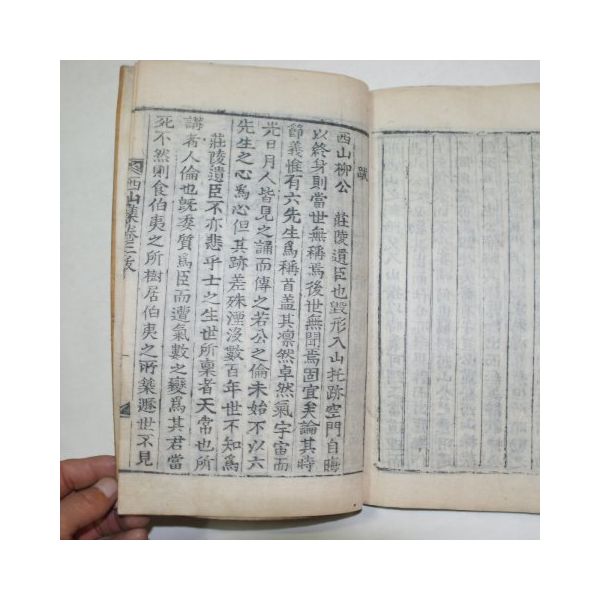 跋
西山柳公 莊陵遺臣也毀形入山托跡空門自晦
以終身則當世無稱焉後世無聞焉固宜矣論其時
節義惟有六先生爲稱首盖其凛然卓然氣宇宙而
光日月人皆見之誦而傳之若公之倫未始不以六
先生之心爲心但其跡差殊湮沒數百年世不知爲
莊陵遺臣不亦悲乎士之生世所稟者天常也所
講者人倫也旣委質爲臣而遭氣數之變爲其君當
死不然則食伯夷之所樹居伯夷之所築遯世不見
西山集卷三跋